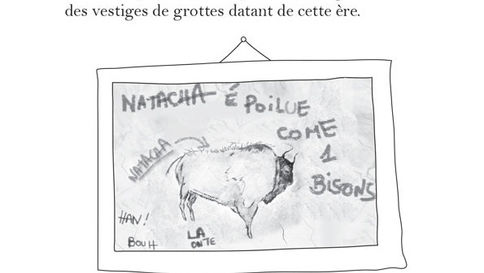 des vestiges de grottes datant de cette ère.
NATACHA É POILUE
COME
1
BISONS
NATACHA
HAN!
BOUH
LA
ONTE